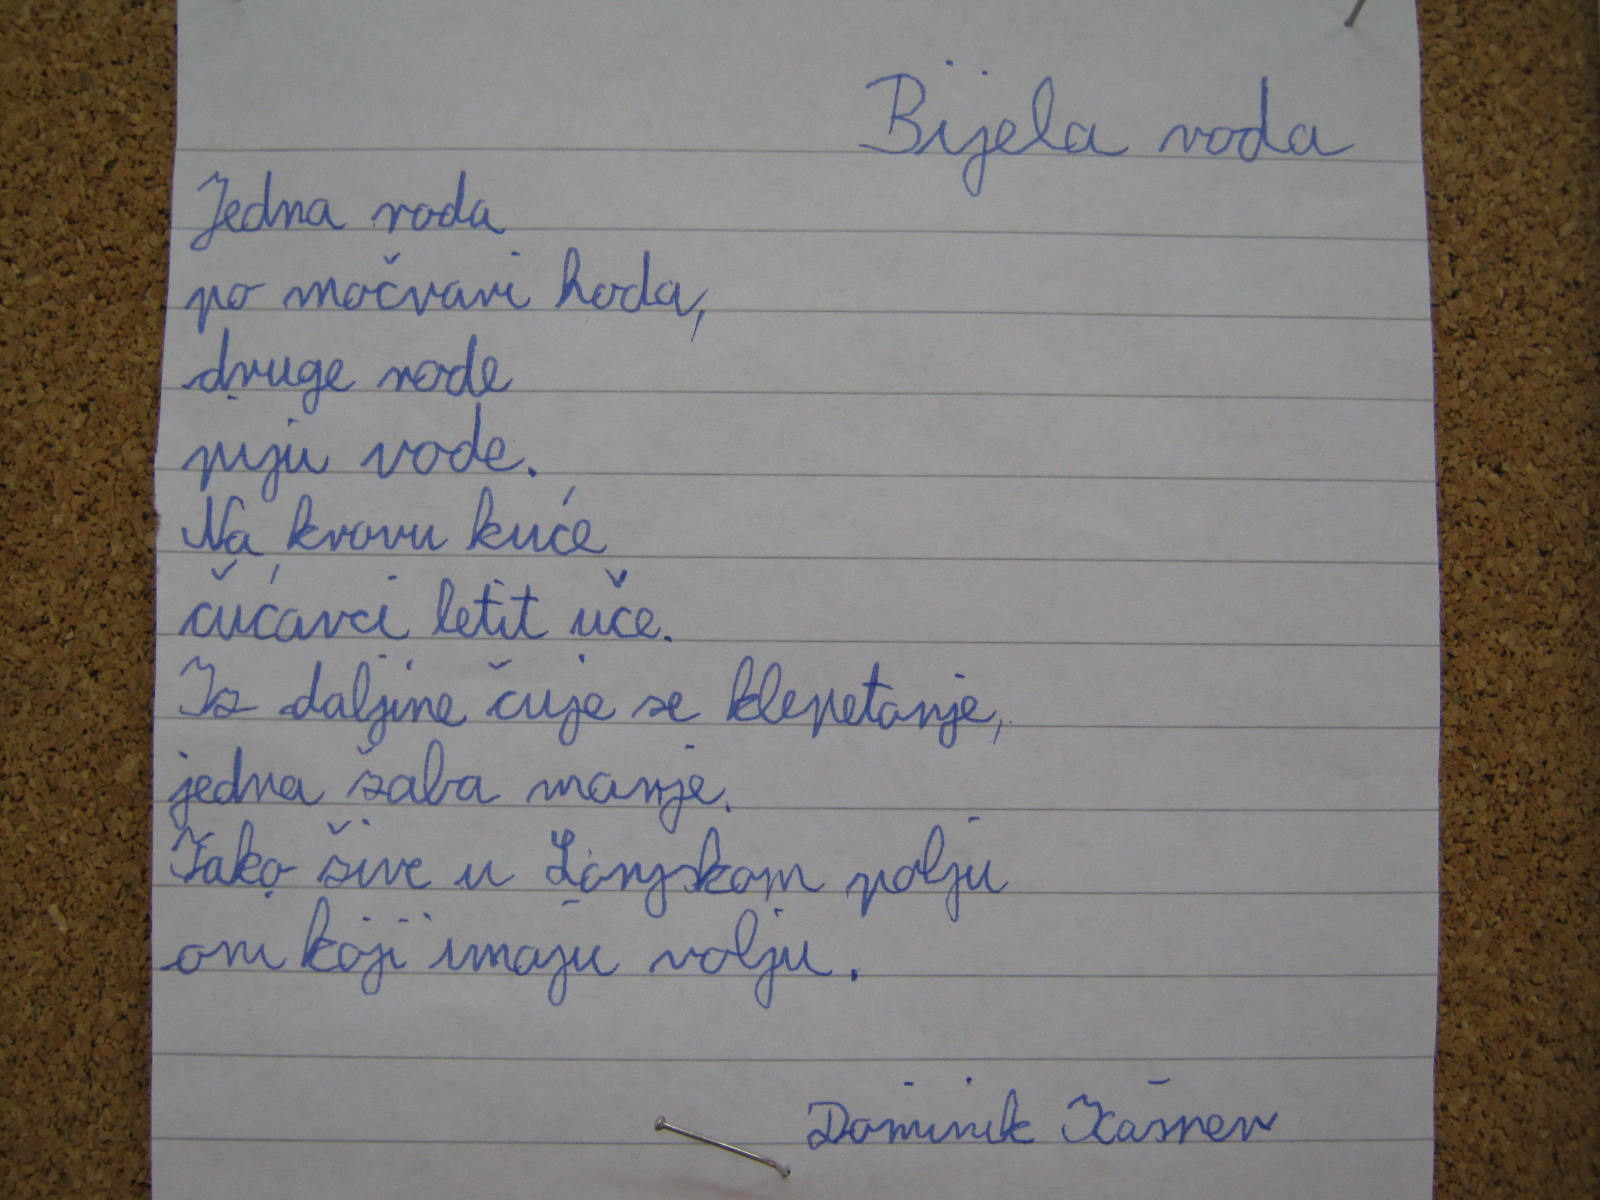 Bijela roda
Jedna roda
po močvari hoda,
druge rode
piju vode.
Na krovu kuće
čućavci letit uče.
Iz daljine čuje se klepetanje,
jedna žaba manje.
Tako žive u Lonjskom polju
oni koji imaju volju.
Dominik Kašner